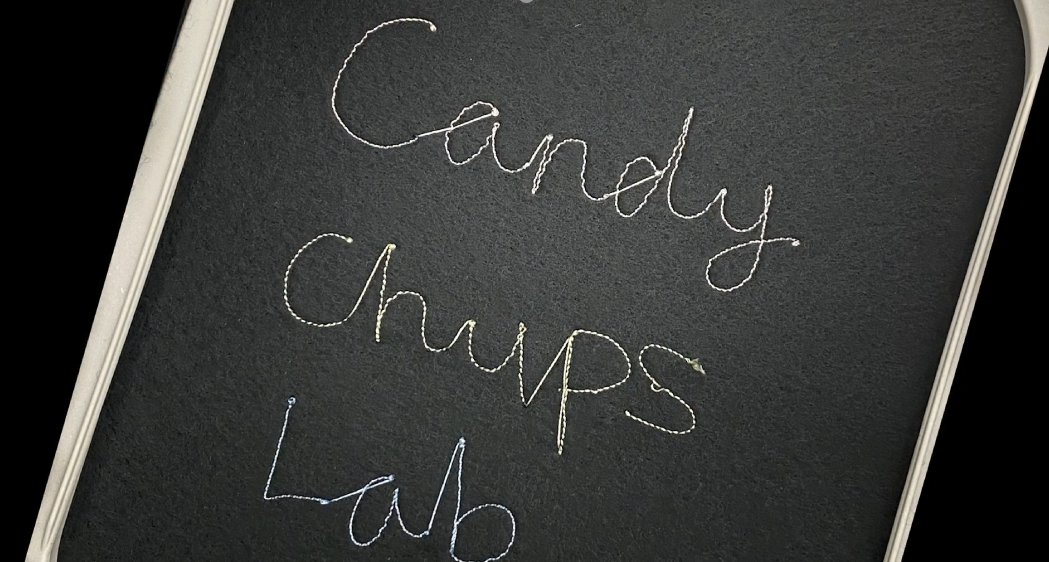 Candy
Chups
Lab